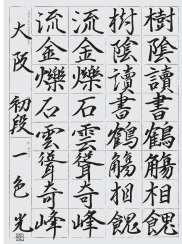 樹陰讀書鶴觴相餽
樹陰讀書鶴觴相餽
流金爍石雲聳奇峰
流金爍石雲聳奇峰
大阪 初段 一色光